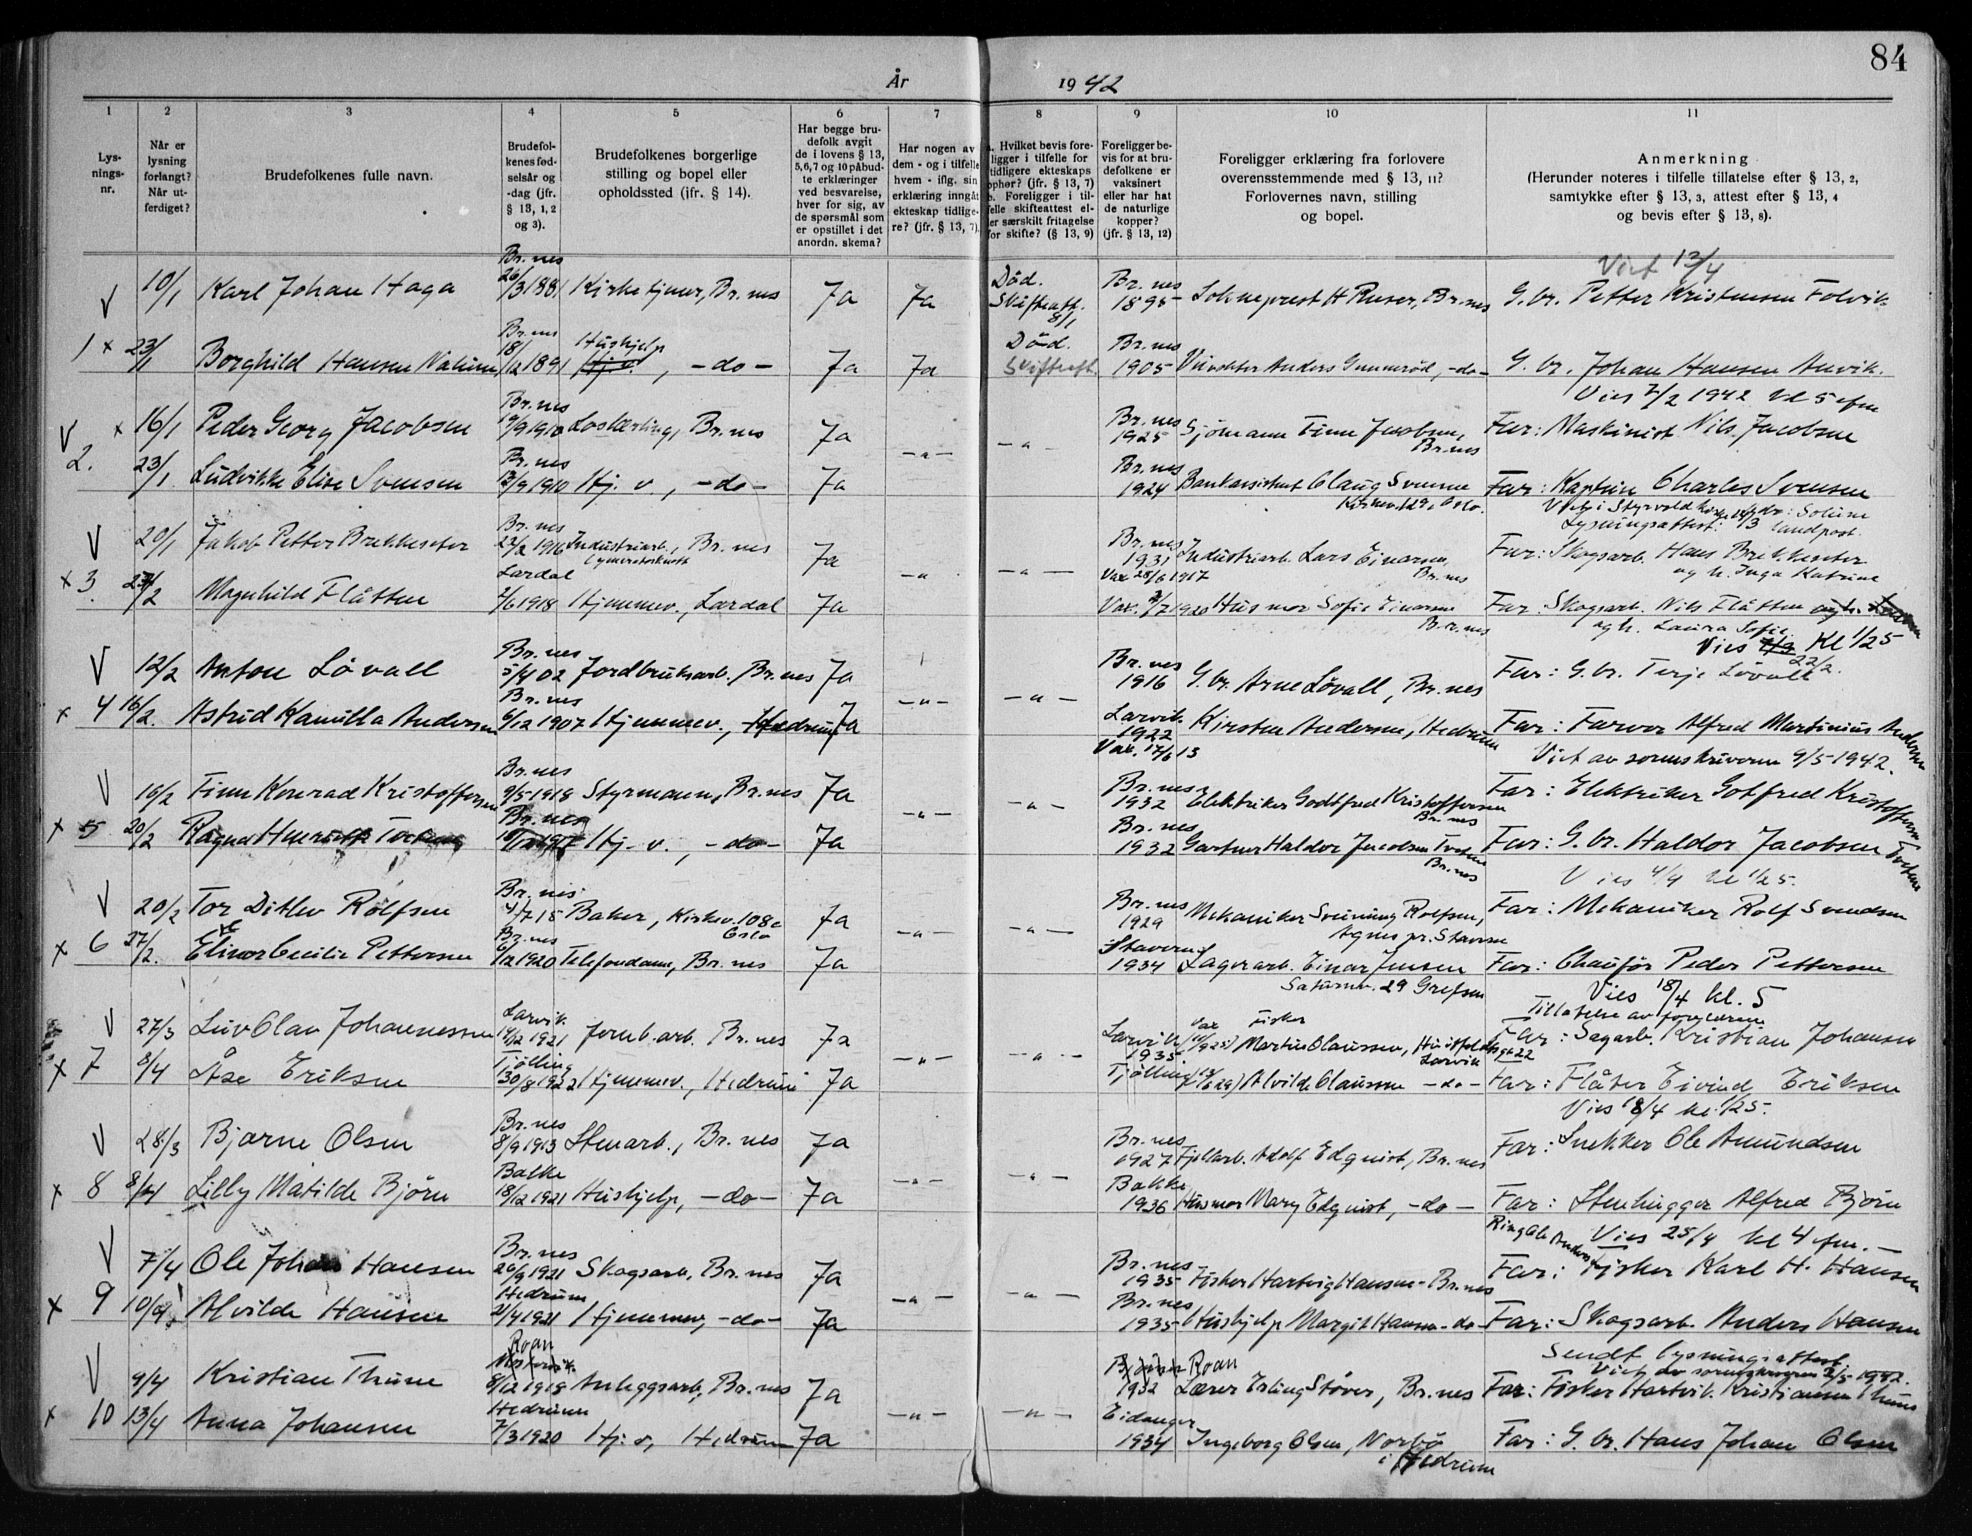 84
År 1942
1 2 3 4 5 6 7 8 9 10 11
Lys-
nings-
nr.
Når er
lysning
forlangt?
Når ut-
ferdiget?
Brudefolkenes fulle navn.
Brudefol-
kenes fød-
selsår og
-dag (jfr.
§ 13, 1, 2
og 3).
Brudefolkenes borgerlige
stilling og bopel eller
opholdssted (jfr. § 14).
Har begge bru-
defolk avgit
de i lovens § 13,
5,6,7 og 10 påbud-
te erklæringer
ved besvarelse,
hver for sig, av
de spørsmål som
er opstillet i det
anordn. skema?
Har nogen av
dem - og i tilfelle
hvem - iflg. sin
erklæring inngåt
ekteskap tidlige-
re? (jfr. § 13, 7).
a. Hvilket bevis fore-
ligger i tilfelle for
tidligere ekteskaps
ophør? (jfr. § 13, 7)
b. Foreligger i til-
felle skifteattest el-
ler særskilt fritagelse
for skifte? (§ 13, 9)
Foreligger be-
vis for at bru-
defolkene er
vaksinert
eller har hat
de naturlige
kopper?
(jfr. § 13, 12)
Foreligger erklæring fra forlovere
overensstemmende med § 13, 11?
Forlovernes navn, stilling
og bopel.
Anmerkning
(Herunder noteres i tilfelle tillatelse efter § 13, 2,
samtykke efter § 13, 3, attest efter § 13, 4
og bevis efter § 13, 8).
Viet 13/4
V 10/1 Karl Johan Haga Br.nes 26/3 1881 Kirketjener, Br.nes Ja Ja Død. Skifteatt. 8/1 Br.nes 1895 Sokneprest H Ruser, Br.nes G.br. Petter Kristensen Folvik
1 x 23/1 Borghild Hansen Br.nes 18/12 1891 Hushjelp Hj.v., -do- Ja Ja Død. Skifteatt. Br.nes 1905 Anders Gunnerød, -do- G.br. Johan Hansen Anvik.
Vies 7/2 1942 kl 5 efm
V x 16/1 Peder Georg Jacobsen Br.nes 19/9 1910 Br.nes Ja -"- -"- Br.nes 1925 Sjømann Finn Jacobsen, Br.nes Far: Maskinist Nils Jacobsen
2. 23/1 Ludvikke Elise Svensen Br.nes 1910 Hj. v., -do- Ja Br.nes 1924 Bankassistent Claug Svensen Kirkev. 129, Oslo. Far: Kaptein Charles Svensen
Lysningsattest: landpost.
V 20/1 Jakob Petter Brekkeseter Br.nes 22/2 1916 Industriarb., Br.nes Ja -"- -"- Br.nes 1931 Industriarb. Lars Einarsen, Br.nes Far: Skogsarb. Hans Brekkeseter og h. Inga Katrine
x 3. Magnhild Flåtten Lardal 7/6 1918 Hjemmev., Lardal Ja Vax 28/6 1917 Vax. 2/7 1920 Husmor Sofie Einarsen Br.nes Far: Skogsarb. Nils Flåtten og h. Laura Sofie
Vies 22/2 Kl 1/2 5
V 12/2 Anton Løvall Br.nes 5/4 02 Jordbruksarb., Br.nes Ja -"- -"- Br.nes 1916 G.br. Arne Løvall, Br.nes Far: G.br. Terje Løvall
x 4 16/2. Astrid Kamilla Andersen Br.nes 9/12 1907 Hjemmev., Hedrum Ja Larvik 1922 Vax. 17/6 13 Kirsten Andersen, Hedrum Far: Farver Alfred Martinius Andersen
Viet av sorenskriveren 9/5-1942.
V 16/2 Finn Konrad Kristoffersen Br.nes 9/5-1918 Styrmann, Br.nes Ja -"- -"- Br.nes 1932 Elektriker Godtfred Kristoffersen Br.nes Far: Elektriker Gotfred Kristoffersen
x 5 20/2 Ragna Henriette Br.nes Hj. v., -do- Ja Br.nes 1932 Gartner Haldor Jacobsen Tveten Br.nes Far: G.br. Haldor Jacobsen Tveten
Vies 4/4 kl 1/2 5.
V 20/2 Tor Ditlev Rolfsen Br.nes 4/7 15 Baker, Kirkev. 108c Oslo Ja -"- -"- Br.nes 1929 Mekaniker Sveinung Rolfsen, Agnes pr. Stavern Far: Mekaniker Rolf Svendsen
x 6 27/2. Elinor Cecilie Pettersen Br.nes 6/12 1920 Telefondame, Br.nes Ja Stavern 1934 Lagerarb. Einar Jensen Saturnv. 29 Grefsen Far: Chaufør Peder Pettersen
Vies 18/4 kl. 5
Tillatelse av foreldrene
V 27/3 Leiv Olav Johannessen Larvik 14/12 1921 Jernb.arb. Br.nes Ja -"- -"- Larvik 1935 Fisker Martin Olaussen, Larvik Far: Sagarb. Kristian Johansen
x 7 8/4 Åse Eriksen Tjølling 30/8 1922 Hjemmev., Hedrum Ja Tjølling Alvilde Olaussen -do- Far: Fløter Eivind Eriksen
Vies 18/4 kl. 1/2 5.
V 28/3 Bjarne Olsen Br.nes 8/9 1913 Stenarb., Br.nes Ja -"- -"- Br.nes 1927 Fjellarb. Adolf Edquist, Br.nes Far: Snekker Ole Amundsen
x 8 8/4 Lilly Matilde Bjørn Balke 18/12 1921 Hushjelp, -do- Ja Bakke 1936 Husmor Mary Edquist, -do- Far: Stenhugger Alfred Bjørn
Ring Ole Vies 25/4 kl 4 efm.
V 7/4 Ole Johan Hansen Br.nes 20/9 1921 Skogsarb, Br.nes Ja -"- -"- Br.nes 1935 Fisker Hartvig Hansen - Br.nes Far: Fisker Karl H. Hansen
x 9 10/4 Alvilde Hansen Hedrum 2/4 1921 Hjemmev, -do- Ja Br.nes 1935 Hushjelp Margit Hansen -do- Far: Skogsarb. Anders Hansen
Sendt lysningsattest
Viet av sorenskriveren 2/5-1942.
V 9/4 Kristian Thune Roan 8/12 1918 Anleggsarb, Br.nes Ja -"- -"- Roan 1932 Lærer Erling Støver, Br.nes Far: Fisker Hartvik Kristiansen Thune
x 10 13/4 Anna Johansen Hedrum 7/3 1920 Hj.v, Hedrum Ja Eidanger 1934 Ingeborg Olsen, Norbø i Hedrum Far: G.br. Hans Johan Olsen